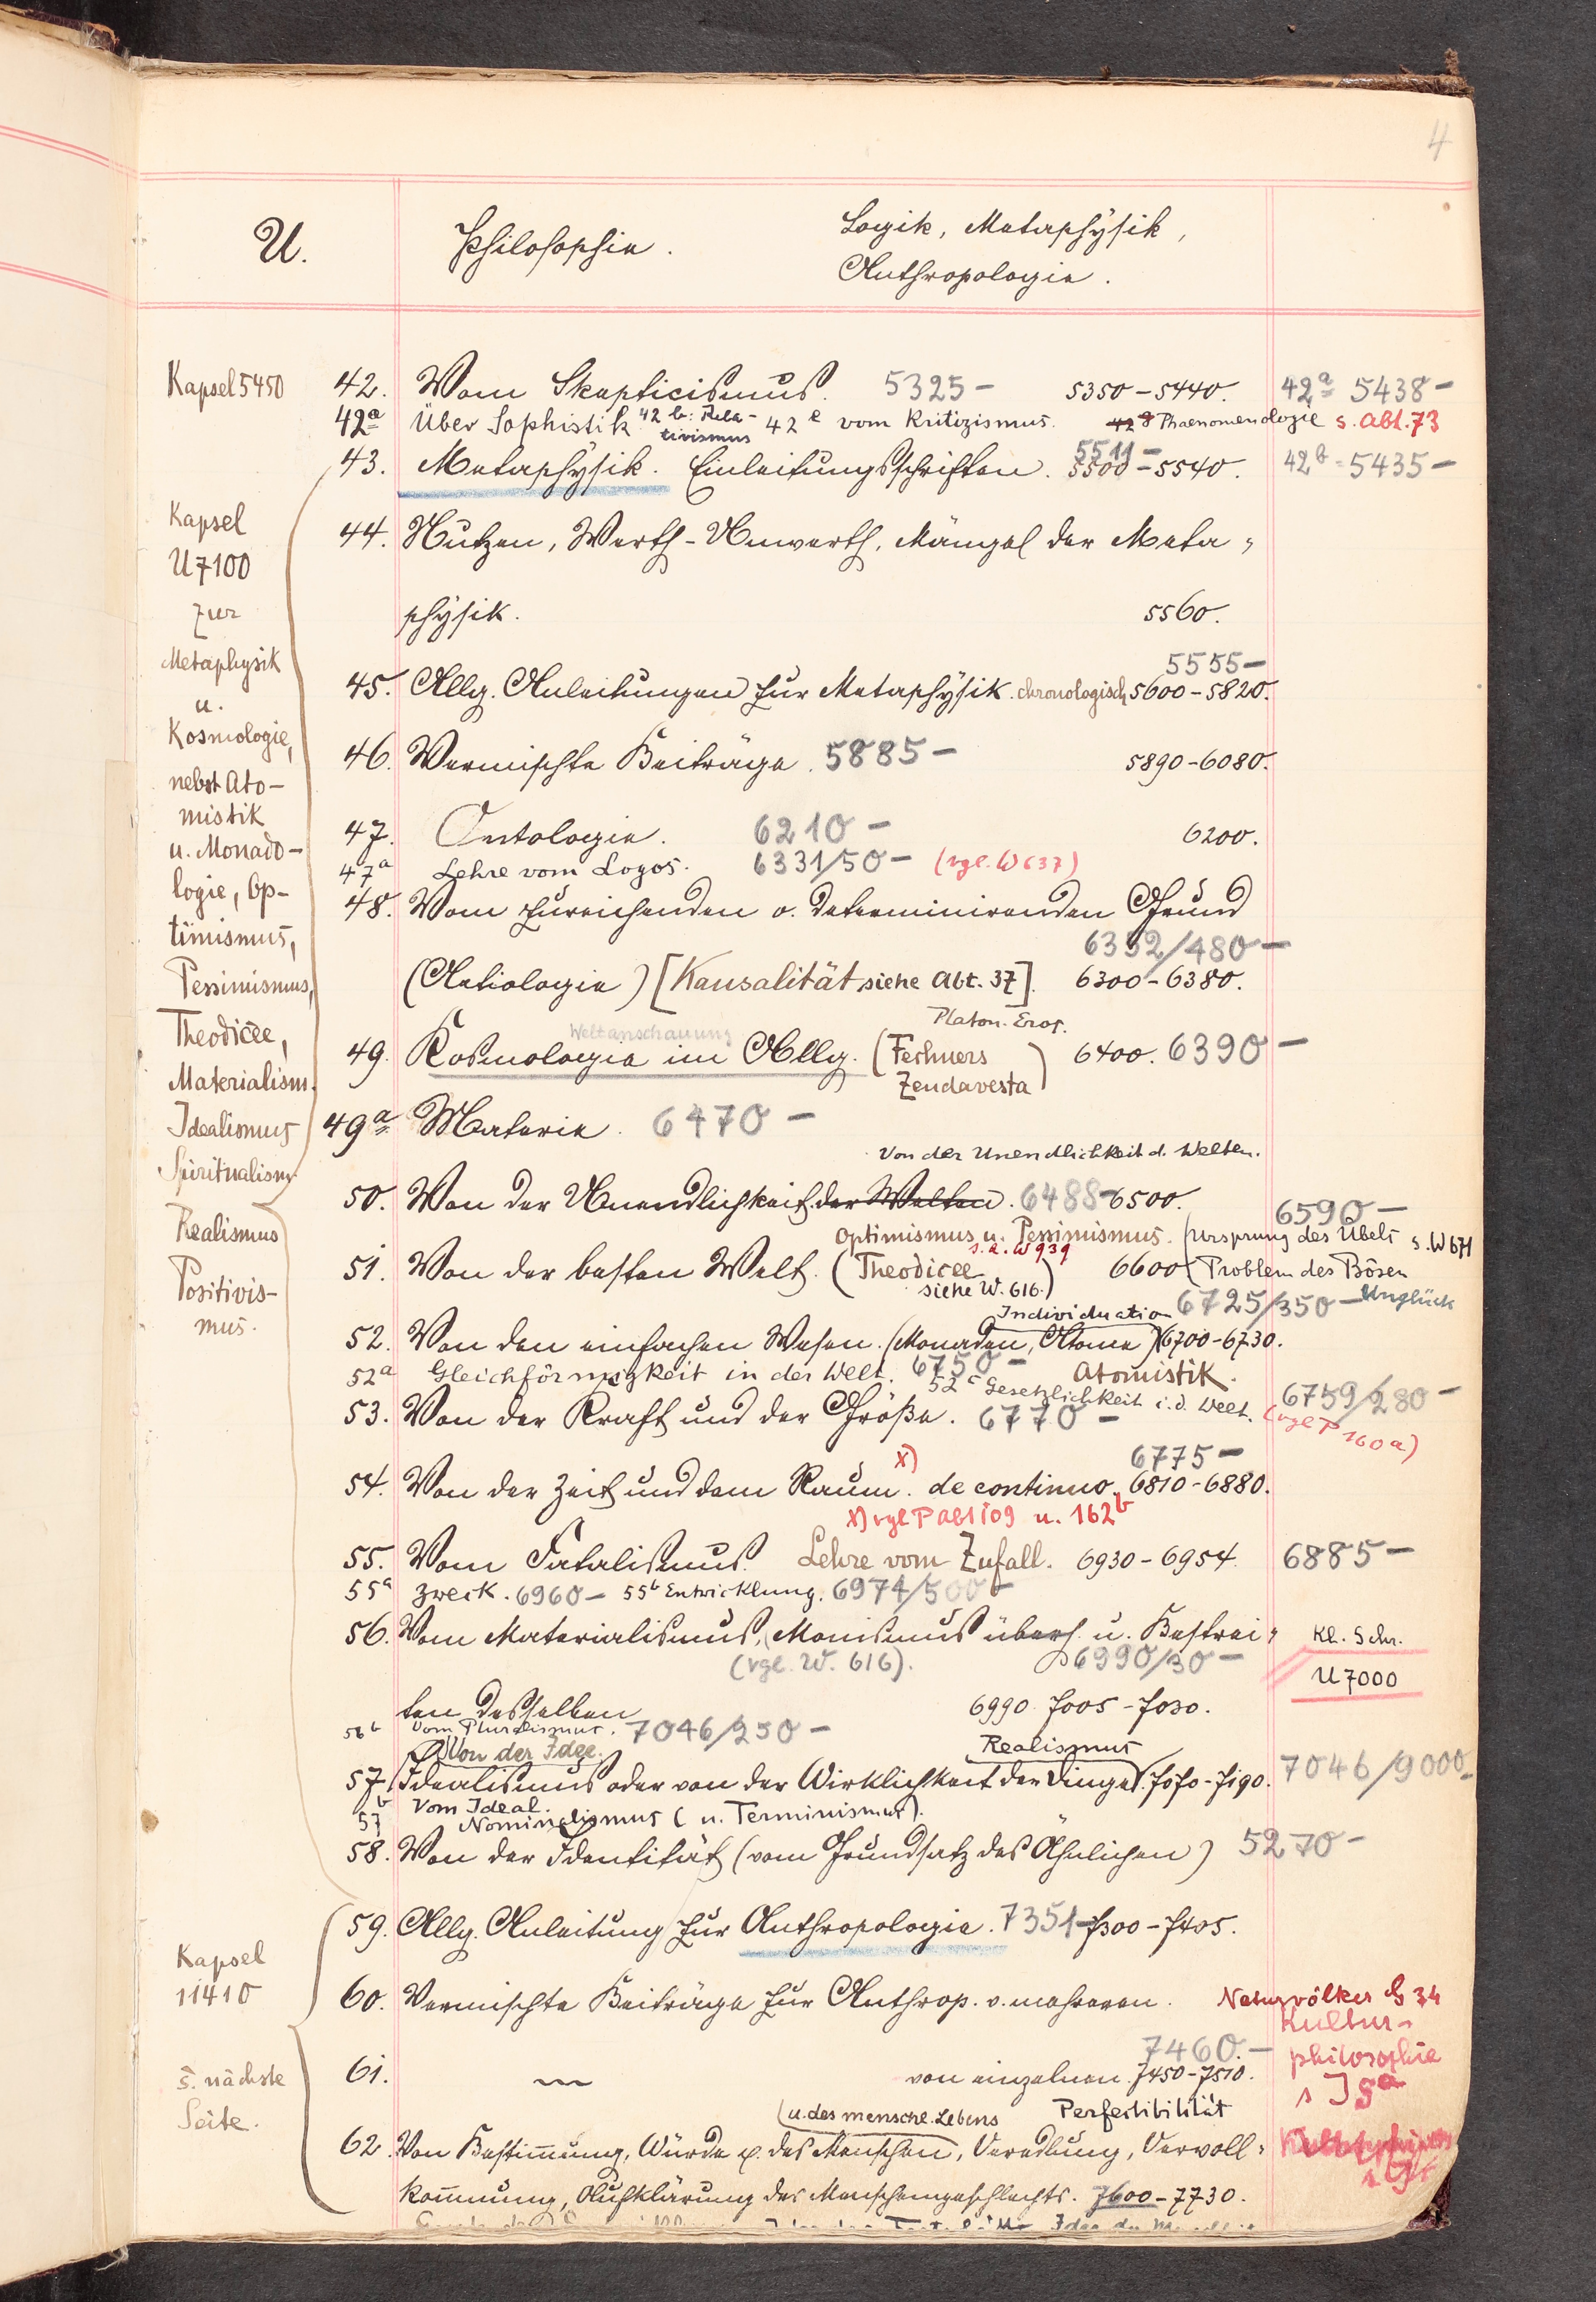 4
U. Philosophie. Logik, Metaphysik,
Anthropologie.
Kapsel 5450 42. Vom Skepticismus. 5325- 5350-5440. 42a 5438-
42a Über Sophistik 42 b: Rela-tivismus 42 e vom Kritizismus. Phaenomenologie s. Abt. 73
43. Metaphysik. Einleitungsschriften. 5511- 5500-5540. 42b = 5435-
Kapsel
U 7100
zur
Metaphysik
u.
Kosmologie,
nebst Ato-
mistik
u. Monado-
logie, Op-
timismus,
Pessimismus,
Theodicee,
Materialism.
Idealismus
Spiritualism.
Realismus
Positivis-
mus.
44. Nutzen, Werth-Unwerth, Mängel der Meta-
physik. 5560.
5555-
45. Allg. Anleitungen zur Metaphysik. chronologisch 5600-5820.
46. Vermischte Beiträge. 5885- 5890-6080.
47. Ontologie. 6210- 6200.
47a Lehre vom Logos. 6331/50- (vgl. W 637)
48. Vom zureichenden o. determinirenden Grund
6352/480-
(Aetiologie) [Kausalität siehe Abt. 37]. 6300-6380.
Platon. Eros.
Weltanschauung
49. Kosmologie im Allg. (Fechners Zendavesta) 6400. 6390-
49a Materie. 6470-
Von der Unendlichkeit d. Welten.
50. Von der Unendlichkeit der Welten. 6488-6500. 6590-
Optimismus u. Pessimismus. Ursprung des Übels s. W 671
s. a. W 939
51. Von der besten Welt. (Theodicee siehe W. 616.) 6600 Problem des Bösen
Unglück
Individuation 6725/350-
52. Von den einfachen Wesen. (Monaden, Atome) 6700-6730.
52a Gleichförmigkeit in der Welt. 6750- Atomistik.
52c Gesetzlichkeit i. d. Welt. 6759/280-
53. Von der Kraft und der Größe. 6770- (vgl P 160a)
6775-
54. Von der Zeit und dem Raum. x) de continuo. 6810-6880.
x) vgl P Abt 109 u. 162b
55. Vom Fatalismus. Lehre vom Zufall. 6930-6954. 6885-
55a Zweck. 6960- 55b Entwicklung. 6974/500-
56. Vom Materialismus, (Monismus überh. u. Bestrei- Kl. Schr.
(vgl. W. 616). 6990/30- U 7000
ten desselben 6990. 7005-7030.
56b Vom Pluralismus. 7046/250-
Von der Idee. Realismus
57. Idealismus oder von der Wirklichkeit der Dinge. 7070-7190. 7046/9000-
Vom Ideal.
57b Nominalismus (u. Terminismus).
58. Von der Identität (vom Grundsatz des Ähnlichen) 5270-
59. Allg. Anleitung zur Anthropologie. 7351- 7300-7405.
Kapsel
11410
60. Vermischte Beiträge zur Anthrop. v. mehreren. Naturvölker G 34
Kultur-
philosophie
s J 5a
7460.-
61. von einzelnen. 7450-7510.
s. nächste
Seite.
(u. des menschl. Lebens Perfectibilität
62. Von Bestimmung, Würde p. des Menschen, Veredlung, Vervoll-
kommnung, Aufklärung des Menschengeschlechts. 7600-7730.